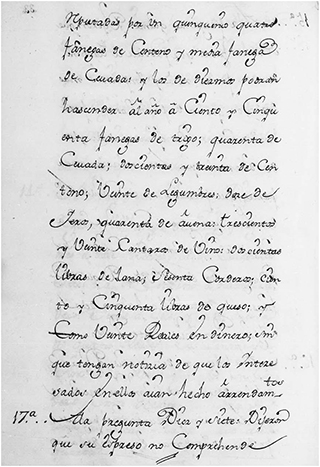 Nputadas por un quinquenio quatro
fanegas de Centeno y media fanega
de Cevada: y los de diezmos podran
hascender al año â Ciento y Cinqu
enta fanegas de trigo; quarenta de
Cevada; doscientas y treinta de Cen
teno; Veinte de Legumbres; doze de
Jeros, quarenta de avena: trescientos
y Veinte Cantaros de Vino: doscientas
libras de Lana; settenta Corderos; Cien
to y Cinquenta libras de queso; y
Como Veinte Reales en dinero; sin
que tengan noticia de que los Intere
sados en ellos aian hecho arrendam.tos
17.ª.. Ala pregunta Diez y siete: Dijeron
que su expreso no Comprehende